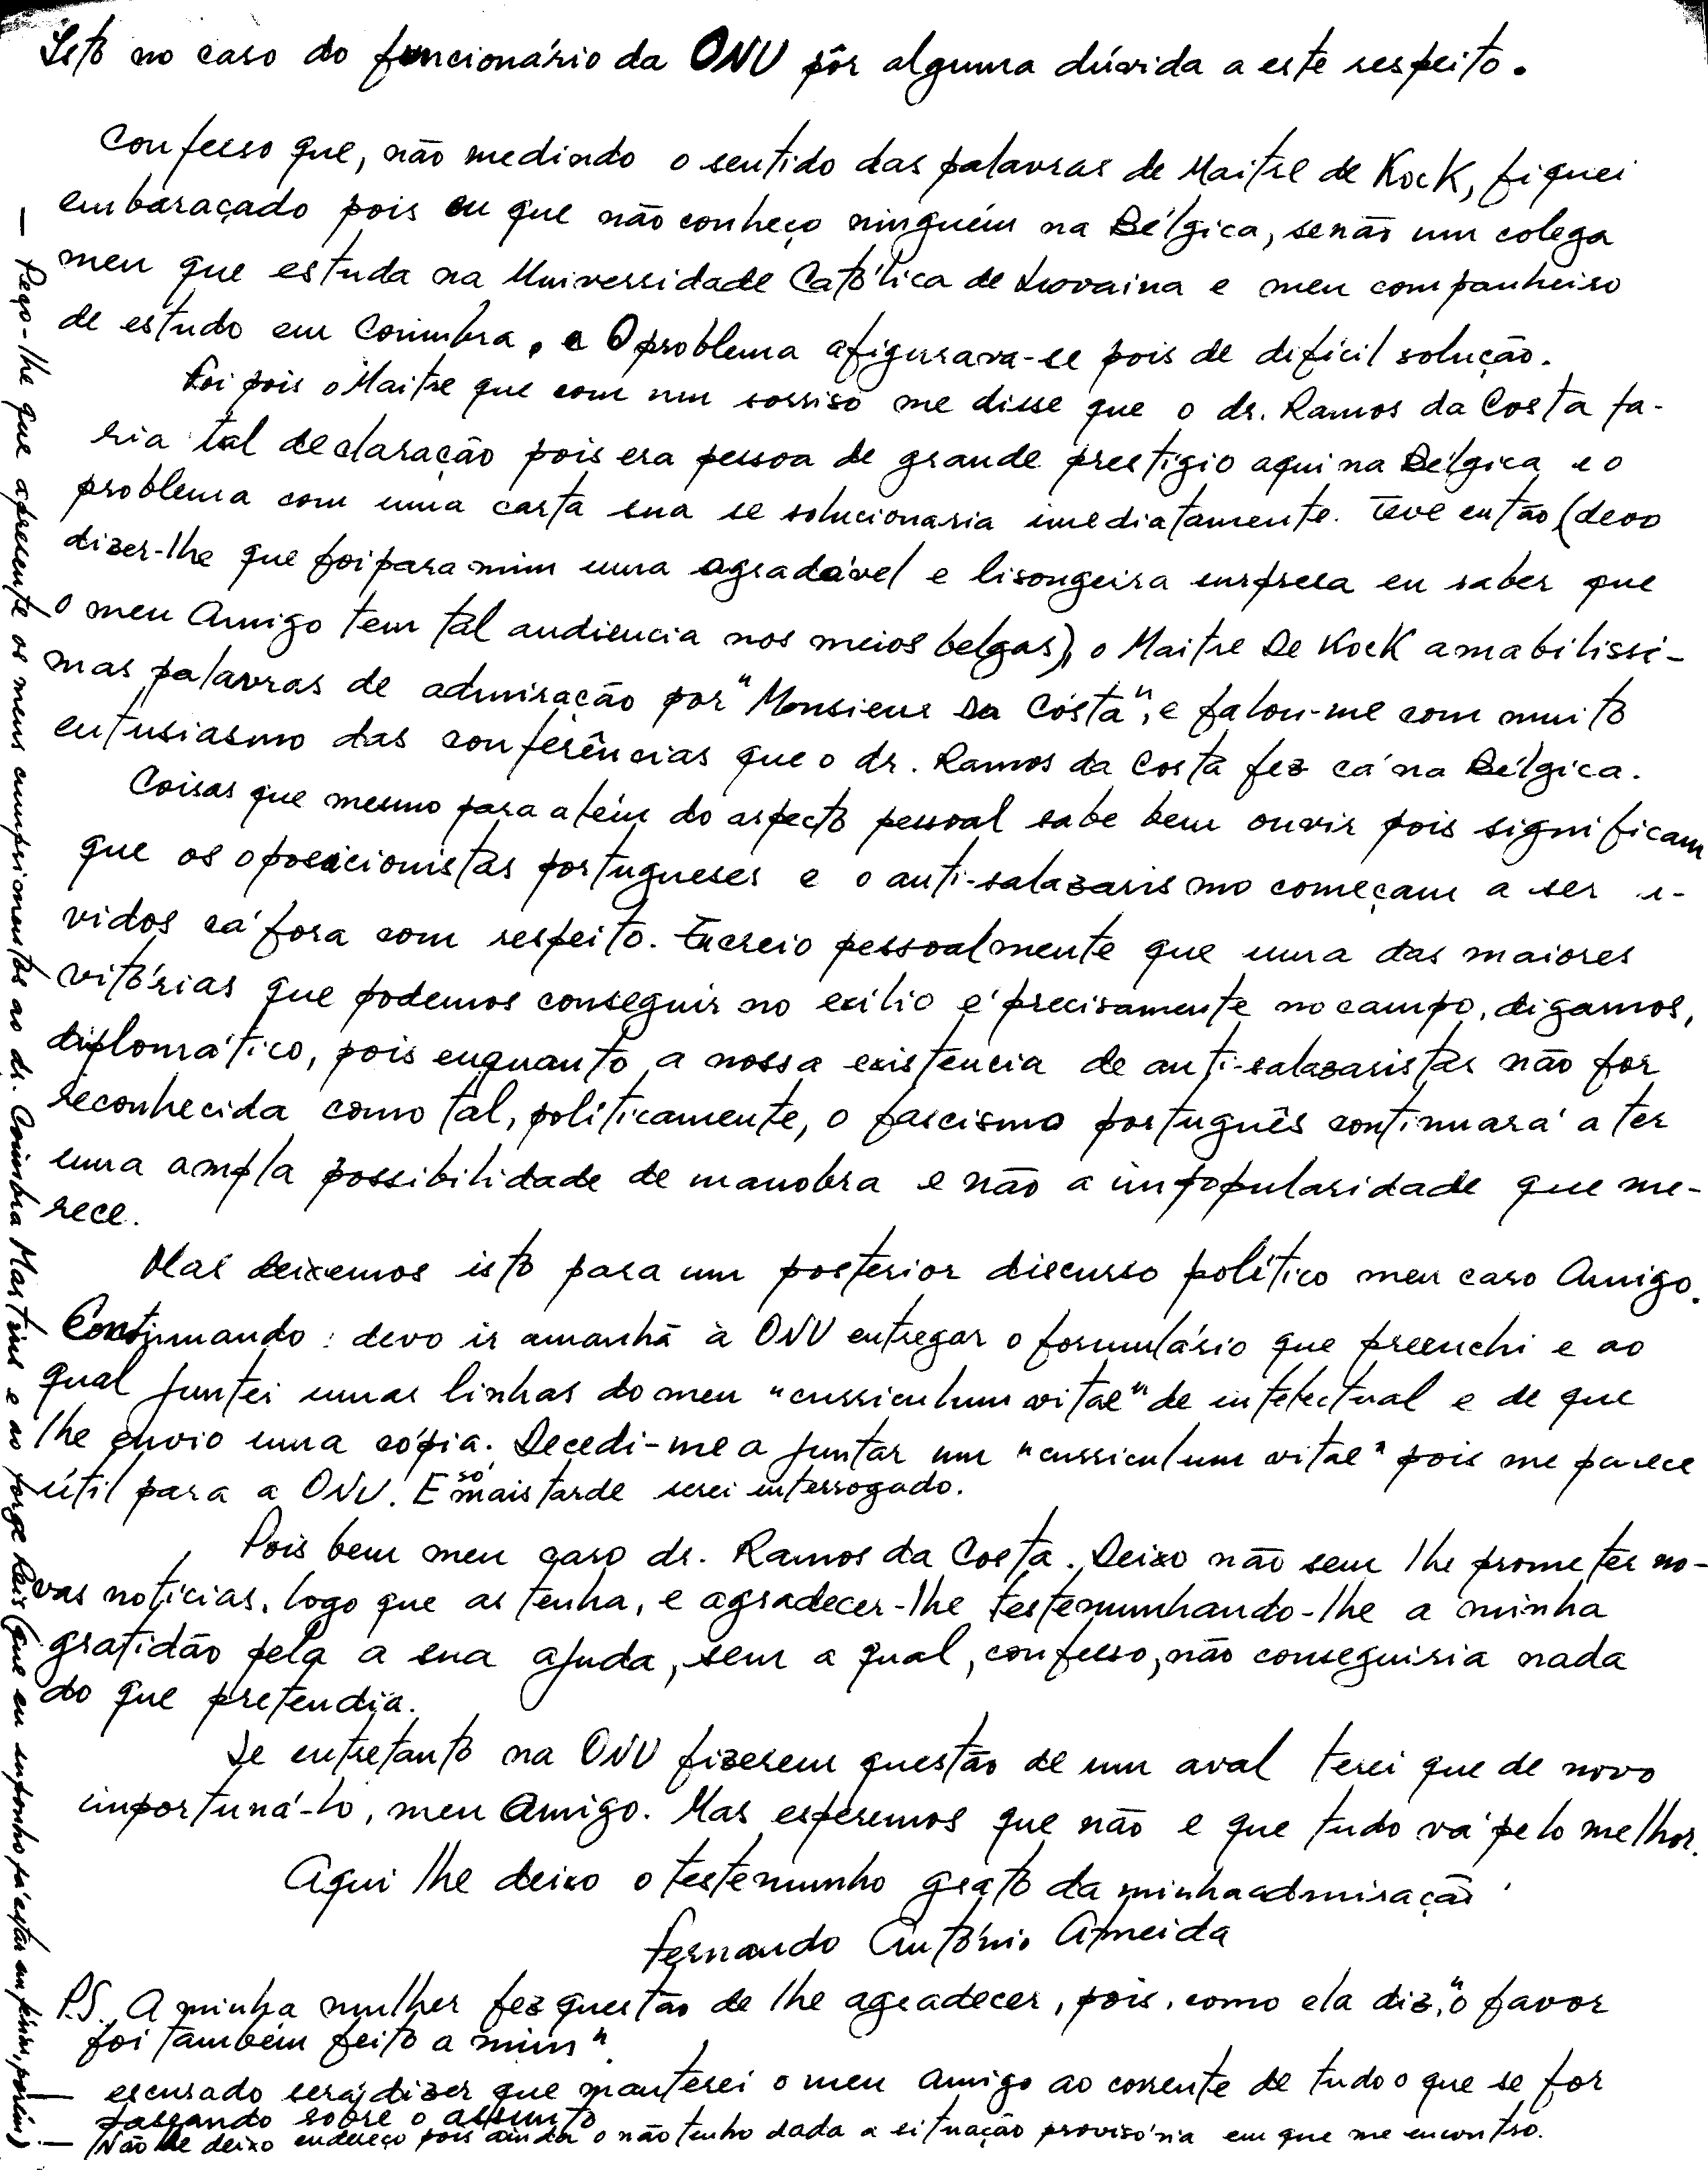 Isto no caso do funcionário da ONU pôr alguma dúvida a este respeito.
Confesso que, não medindo o sentido das palavras de Maitre de Kock, fiquei
embaraçado pois eu que não conheço ninguém na Bélgica, senão um colega
meu que estuda na Universidade Católica de Lovaina e meu companheiro
de estudo em Coimbra, e O problema afigurava-se pois de difícil solução.
Foi pois o Maitre que com um sorriso me disse que o dr. Ramos da Costa fa-
ria tal declaração pois era pessoa de grande prestígio aqui na Bélgica e o
problema com uma carta sua se solucionaria imediatamente. Teve então (devo
dizer-lhe que foi para mim uma agradável e lisongeira surpresa eu saber que
o meu Amigo tem tal audiencia nos meios belgas), o Maitre De Kock amabilissi-
mas palavras de admiração por "Monsieur Da Costa", e falou-me com muito
entusiasmo das conferências que o dr. Ramos da Costa fez cá na Bélgica.
Coisas que mesmo para além do aspecto pessoal sabe bem ouvir pois significam
que os oposicionistas portugueses e o anti-salazarismo começam a ser
vidos cá fora com respeito. Eu creio pessoalmente que uma das maiores
vitórias que podemos conseguir no exílio é precisamente no campo, digamos,
diplomático, pois enquanto a nossa existencia de anti-salazaristas não for
reconhecida como tal, politicamente, o fascismo português continuará a ter
uma ampla possibilidade de manobra e não a impopularidade que me-
rece.
Mas deixemos isto para um posterior discurso político meu caro Amigo.
Continuando: devo ir amanhã à ONU entregar o formulário que preenchi e ao
qual juntei umas linhas do meu "curriculum vitae" de intelectual e de que
lhe envio uma cópia. Decedi-me a juntar um "curriculum vitae" pois me parece
útil para a ONU. E só mais tarde serei interrogado.
Pois bem meu caro dr. Ramos da Costa. Deixo não sem lhe prometer no-
vas notícias, logo que as tenha, e agradecer-lhe testemunhando-lhe a minha
gratidão pela a sua ajuda, sem a qual, confesso, não conseguiria nada
do que pretendia.
Se entretanto na ONU fizerem questão de um aval terei que de novo
importuná-lo, meu Amigo. Mas esperemos que não e que tudo vá pelo melhor.
Aqui lhe deixo o testemunho grato da minha admiração
Fernando António Almeida
P.S. A minha mulher fez questão de lhe agradecer, pois, como ela diz, "o favor
foi também feito a mim".
— escusado será dizer que manterei o meu amigo ao corrente de tudo o que se for
passando sobre o assunto
— Não lhe deixo endereço pois ainda o não tenho dada a situação provisória em que me encontro.
— Peço-lhe que apresente os meus cumprimentos ao dr. Coimbra Martins e ao Jorge Reis (que eu suponho já estar em férias, porém)!